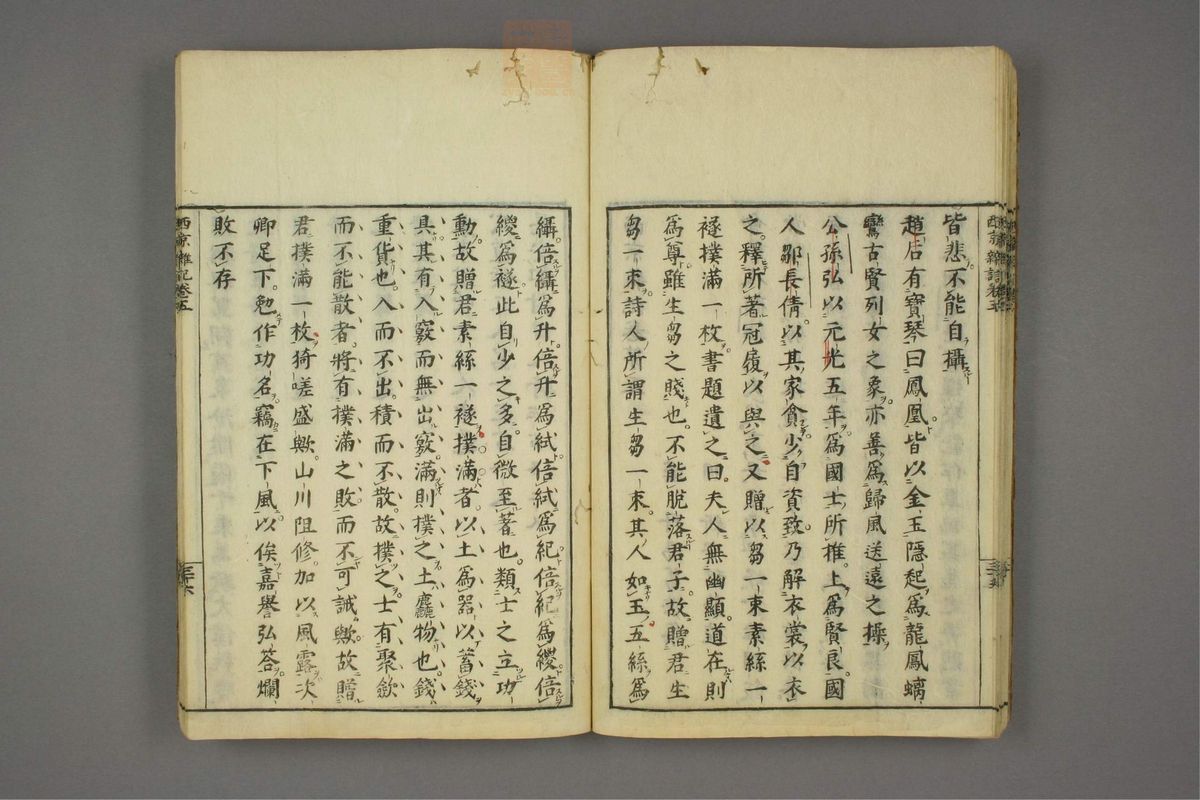 皆悲不能自攝
趙后有寶琴曰鳳凰皆以金玉隱起爲龍鳳螭
鸞古賢列女之象亦善爲歸風送遠之操
公孫弘以元光五年爲國士所推上爲賢良國
人鄒長倩以其家貪少自資致乃解衣裳以衣
之釋所著冠履以與之又贈以芻一束素絲一
襚撲滿一枚書題遺之曰夫人無幽顯道在則
爲尊雖生芻之賤也不能脫落君子故贈君生
芻一束詩人所謂生芻一束其人如玉五絲爲
繑倍繑爲升倍升爲紽倍紽爲紀倍紀爲緵倍
緵爲襚此自少之多自微至著也類士之立功
勳故贈君素絲一襚撲滿者以土爲器以蓄錢
具其有入竅而無出竅滿則撲之土麤物也錢
重貨也入而不出積而不散故撲之士有聚斂
而不能散者將有撲滿之敗而不可誡歟故贈
君撲滿一枚猗嗟盛歟山川阻修加以風露次
卿足下勉作功名竊在下風以俟嘉譽弘答爛
敗不存
西京雜記卷五
三十六